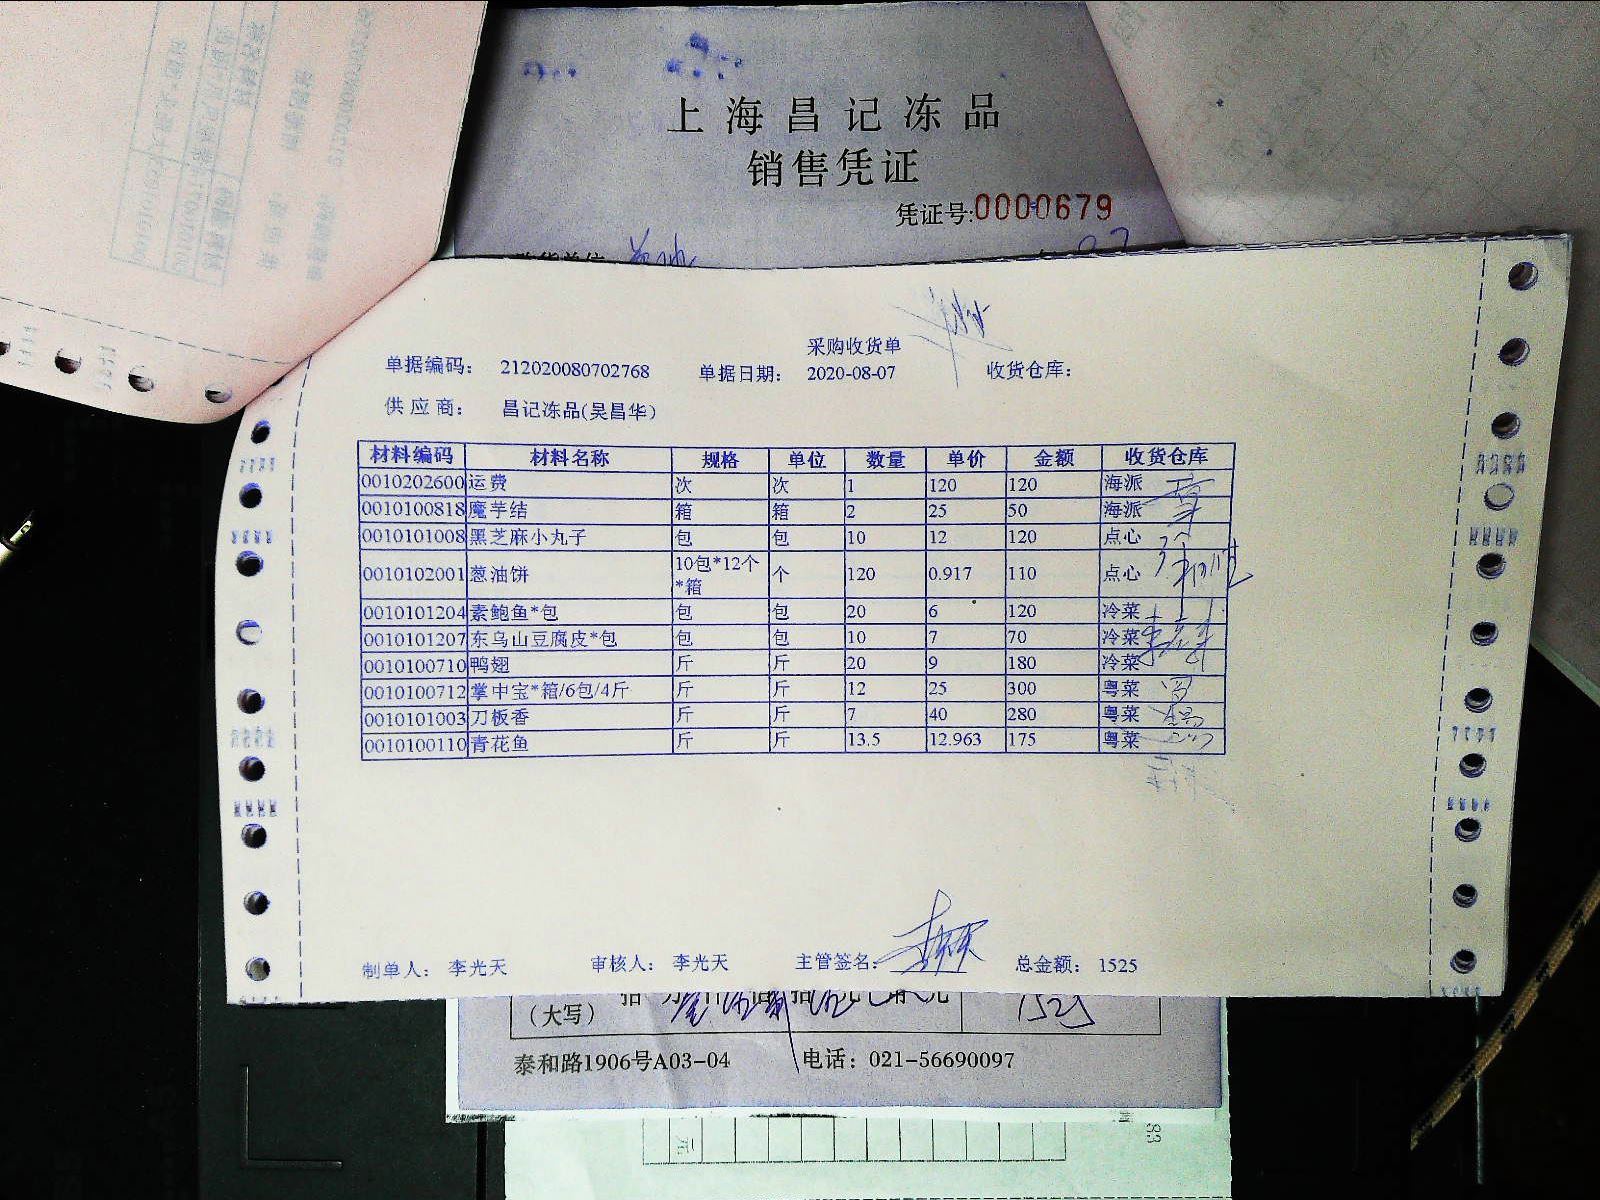 上海昌记冻品
销售凭证
凭证号:0000679
采购收货单
单据编码： 212020080702768 单据日期： 2020-08-07 收货仓库：
供应商： 昌记冻品(吴昌华)
材料编码 材料名称 规格 单位 数量 单价 金额 收货仓库
0010202600 运费 次 次 1 120 120 海派
0010100818 魔芋结 箱 箱 2 25 50 海派
0010101008 黑芝麻小丸子 包 包 10 12 120 点心
0010102001 葱油饼 10包*12个*箱 个 120 0.917 110 点心
0010101204 素鲍鱼*包 包 包 20 6 120 冷菜
0010101207 东乌山豆腐皮*包 包 包 10 7 70 冷菜
0010100710 鸭翅 斤 斤 20 9 180 冷菜
0010100712 掌中宝*箱/6包/4斤 斤 斤 12 25 300 粤菜
0010101003 刀板香 斤 斤 7 40 280 粤菜
0010100110 青花鱼 斤 斤 13.5 12.963 175 粤菜
制单人： 李光天 审核人： 李光天 主管签名: 总金额： 1525
（大写） 1525
泰和路1906号A03-04 电话：021-56690097